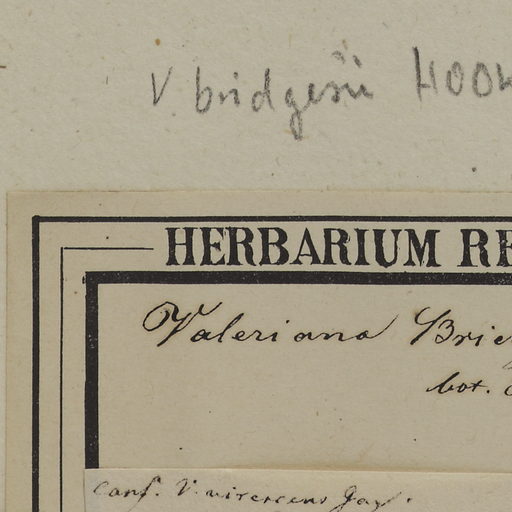 V. bridgesii HOOK
HERBARIUM RE
Valeriana Brid
bot.
Conf. V. virescens Gay.